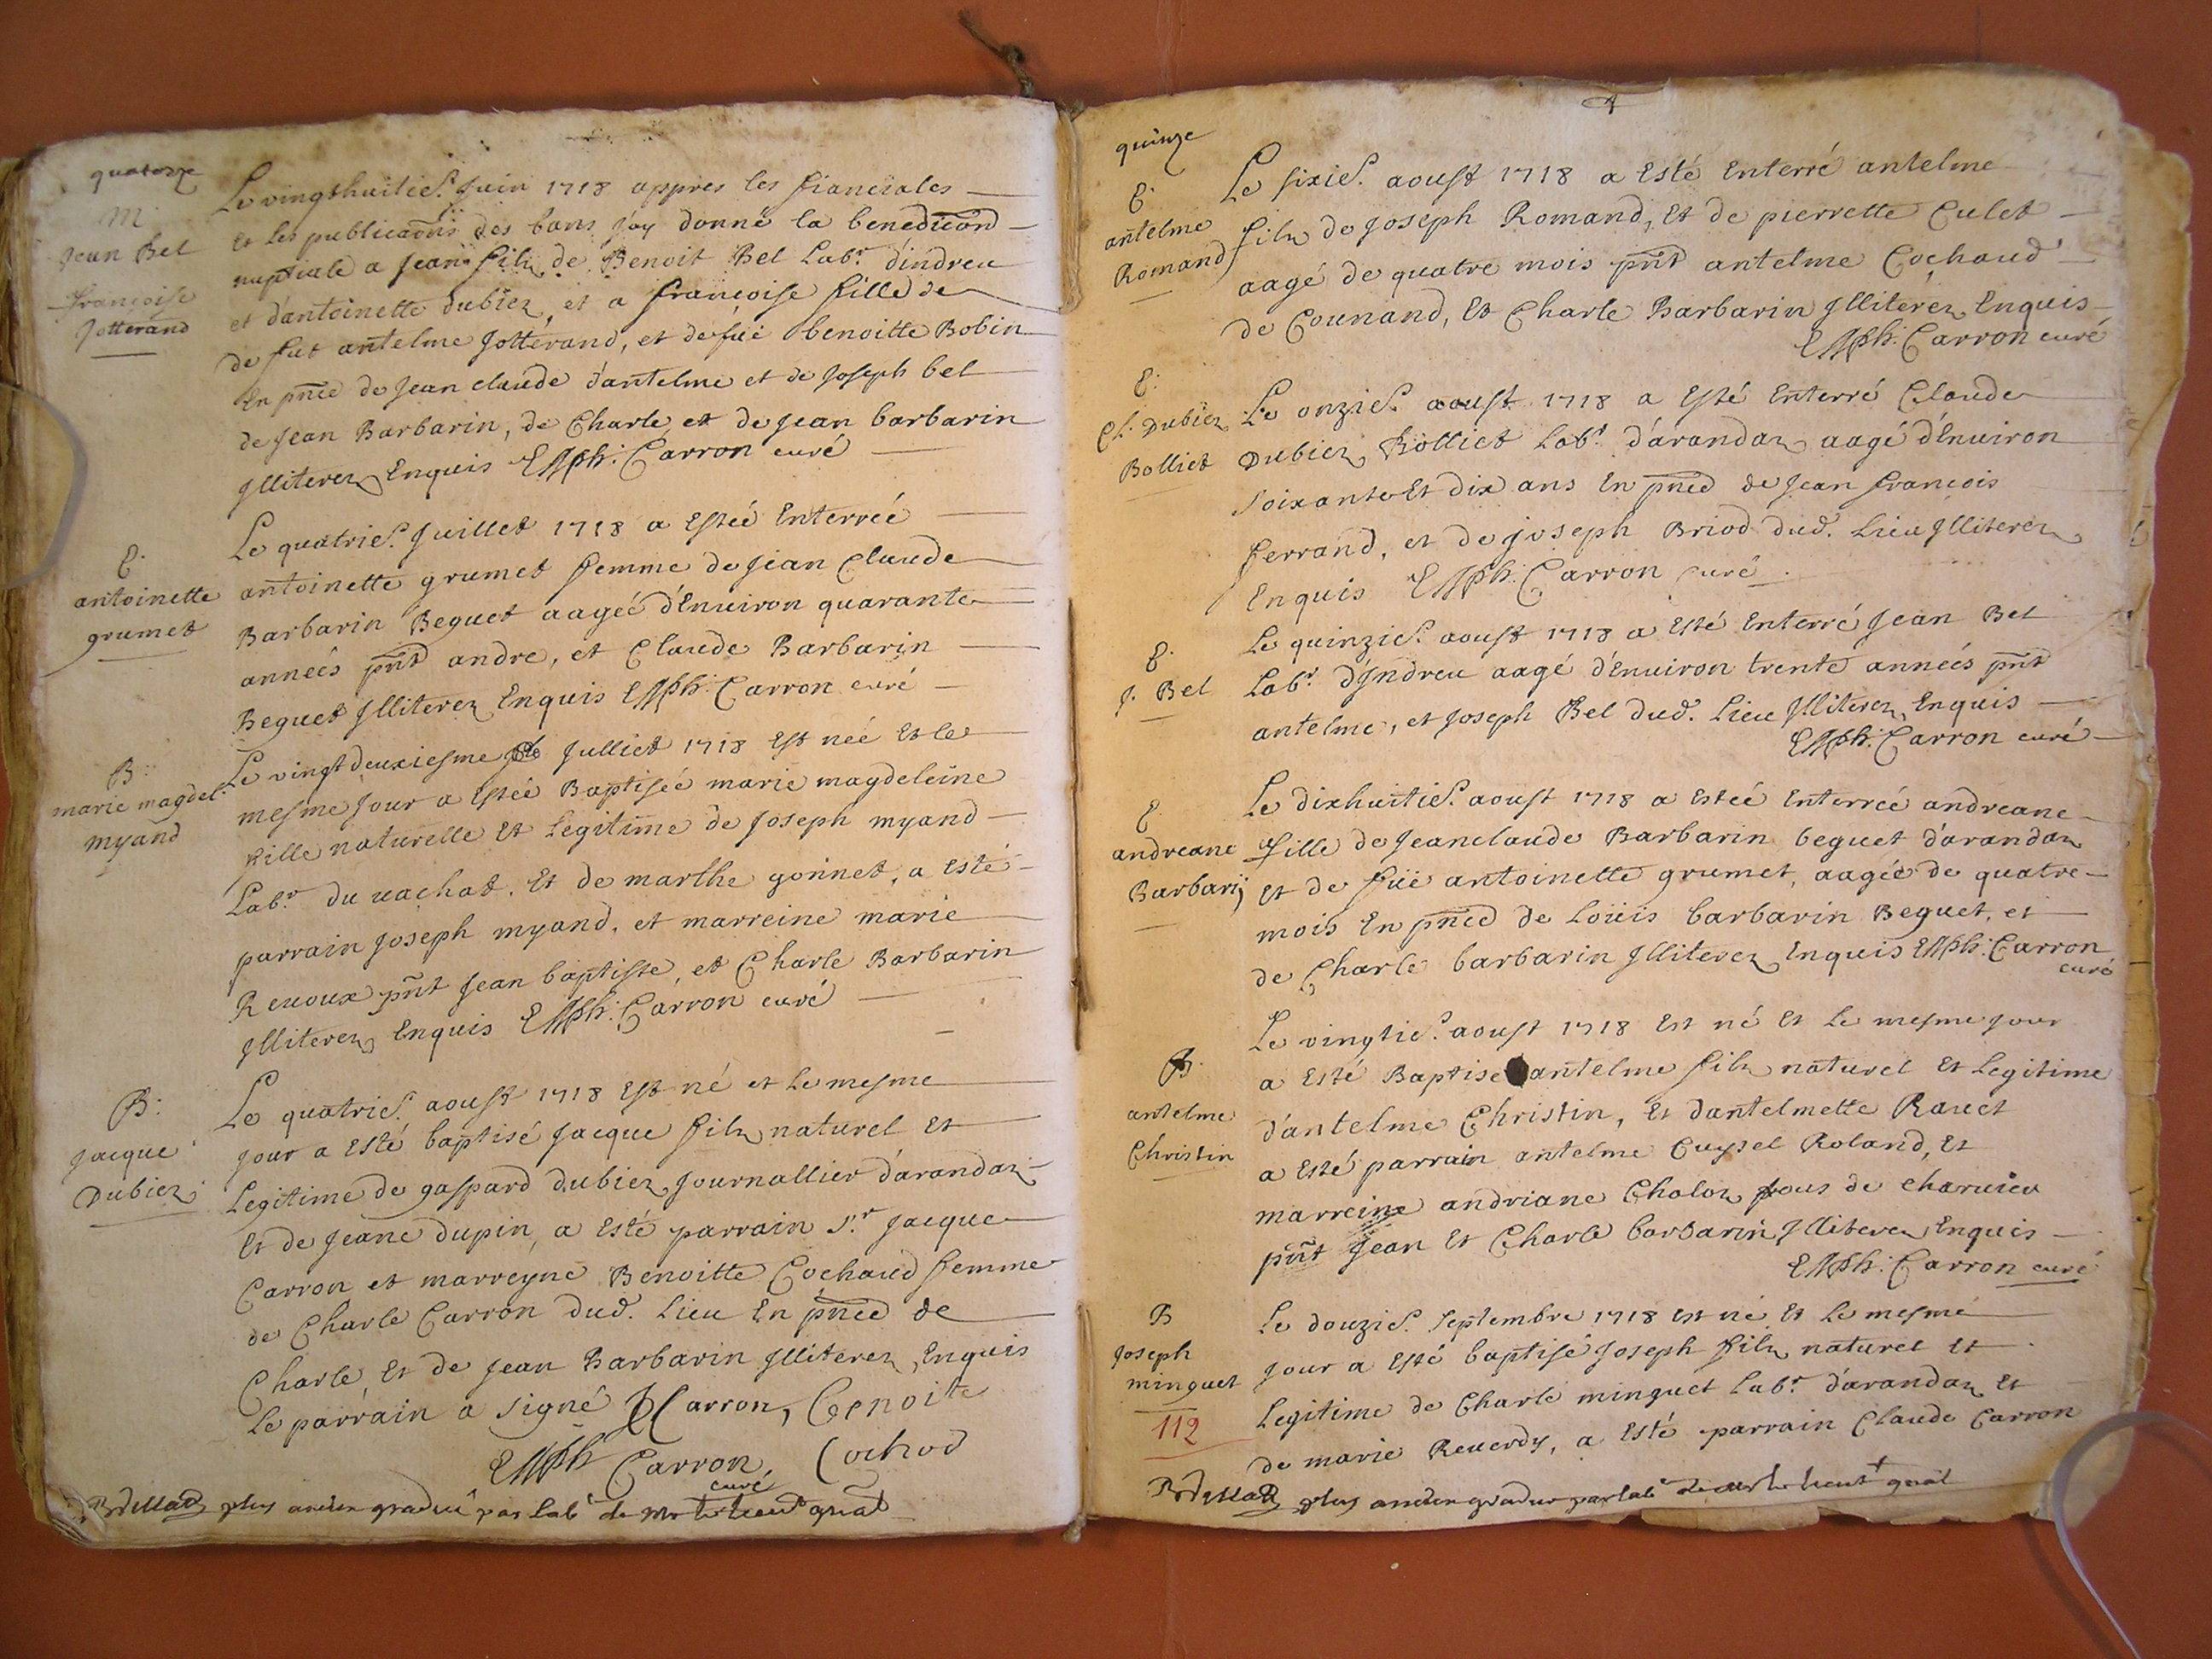 quatorze
M.
Jean Bel
françoise
Jotterand
Le vingthuitieS. Juin 1718 appres les fiancialles
et les publicaons des bans j'ay donné la benediction
nuptiale a Jean filz de Benoit Bel Labr. d'indreu
et d'antoinette dubiez, et a francoise fille de
de fut antelme Jotterand, et de füé benoitte Bobin
En pnce de Jean claude d'antelme et de Joseph bel
de Jean Barbarin, de Charle et de Jean barbarin
Jlliterez Enquis Carron curé
E.
antoinette
grumet
Le quatrieS. Juillet 1718 a Estéé Enterréé
antoinette grumet femme de Jean Claude
Barbarin Beguet aagéé d'Enuiron quarante
annéés pnt andre, et Claude Barbarin
Beguet Jlliterez Enquis Carron curé
B.
marie magdel.
myand
Le vingtdeuxiesme Julliet 1718 Est néé Et le
mesme Jour a Estéé Baptiséé marie magdeleine
fille naturelle Et Legitime de Joseph myand
Labr. du vachat. Et de marthe gonnet, a Esté
parrain Joseph myand, et marreine marie
Reuoux pnt Jean baptiste, et Charle Barbarin
Jlliterez Enquis Carron curé
B.
Jacque
Dubiez
Le quatrieS. aoust 1718 Est né et Le mesme
Jour a Esté baptisé Jacque filz naturel Et
Legitime de gaspard dubiez Journallier d'arandaz
Et de Jeane dupin, a Esté parrain Sr. Jacque
Carron et marreyne Benoitte Cochaud femme
de Charle Carron dud. Lieu En pnce de
Charle Et de Jean Barbarin Jlliterez, Enquis
Le parrain a signé J Carron, Benoite
Carron, Cochod
curé
plus ancien gradué par Labs de Mr le Lieut gnal
quinze
E.
antelme
Romand
Le sixieS. aoust 1718 a Esté Enterré antelme
filz de Joseph Romand, Et de pierrette Culet
aagé de quatre mois pnt antelme Cochaud
de Counand, Et Charle Barbarin Jlliterez Enquis
Carron curé
E.
Cl. Dubiez
Bolliet
Le onzieS. aoust 1718 a Esté Enterré Claude
Dubiez Bolliet Labr. d'arandaz aagé d'Enuiron
Soixante Et dix ans En pnce de Jean francois
ferrand, et de Joseph Briod dud. Lieu Jlliterez
Enquis Carron curé
E.
J. Bel
Le quinzieS. aoust 1718 a Esté Enterré Jean Bel
Labr. d'Indreu aagé d'Enuiron trente annéés pnt
antelme, et Joseph Bel dud. Lieu Jlliterez, Enquis
Carron curé
E.
andreane
Barbarij
Le dixhuitieS. aoust 1718 a Estéé Enterréé andreane
fille de Jeanclaude Barbarin beguet d'arandaz
et de füé antoinette grumet, aagéé de quatre
mois En pnce de Loüis barbarin Beguet, et
de Charle barbarin Jlliterez Enquis Carron
curé
B.
antelme
Christin
Le vingtieS. aoust 1718 Est né Et Le mesme Jour
a Esté Baptisé antelme filz naturel Et Legitime
d'antelme Christin, Et dantelmette Rauet
a Esté parrain antelme Cuysel Roland, Et
marreine andriane Choloz tous de charuieu
pnt Jean Et Charle barbarin Jlliterez Enquis
Carron curé
B
Joseph
minguet
112
Le douzieS. Septembre 1718 est né Et Le mesme
Jour a Esté baptisé Joseph filz naturel Et
Legitime de Charle minguet Labr. d'arandaz Et
de marie Reuerdy, a Esté parrain Claude Carron
plus ancien gradué par labs de Mr le Lieut gnal